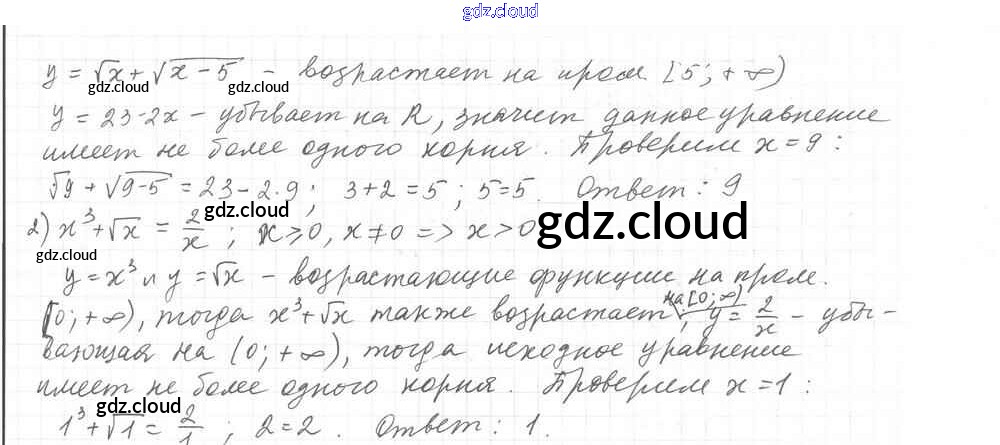 gdz.cloud
y = √x + √(x-5) - возрастает на пром. [5; +∞)
gdz.cloud gdz.cloud
y = 23-2x - убывает на R, значит данное уравнение
имеет не более одного корня. Проверим x=9:
√9 + √(9-5) = 23-2·9; 3+2=5; 5=5. Ответ: 9
gdz.cloud gdz.cloud
2) x³+√x = 2/x; x≥0, x≠0 => x>0
gdz.cloud
y=x³ и y=√x - возрастающие функции на пром.
[0;+∞), тогда x³+√x также возрастает на [0;∞); y=2/x - убы-
вающая на (0;+∞), тогда исходное уравнение
имеет не более одного корня. Проверим x=1:
gdz.cloud
1³+√1 = 2/1; 2=2. Ответ: 1.